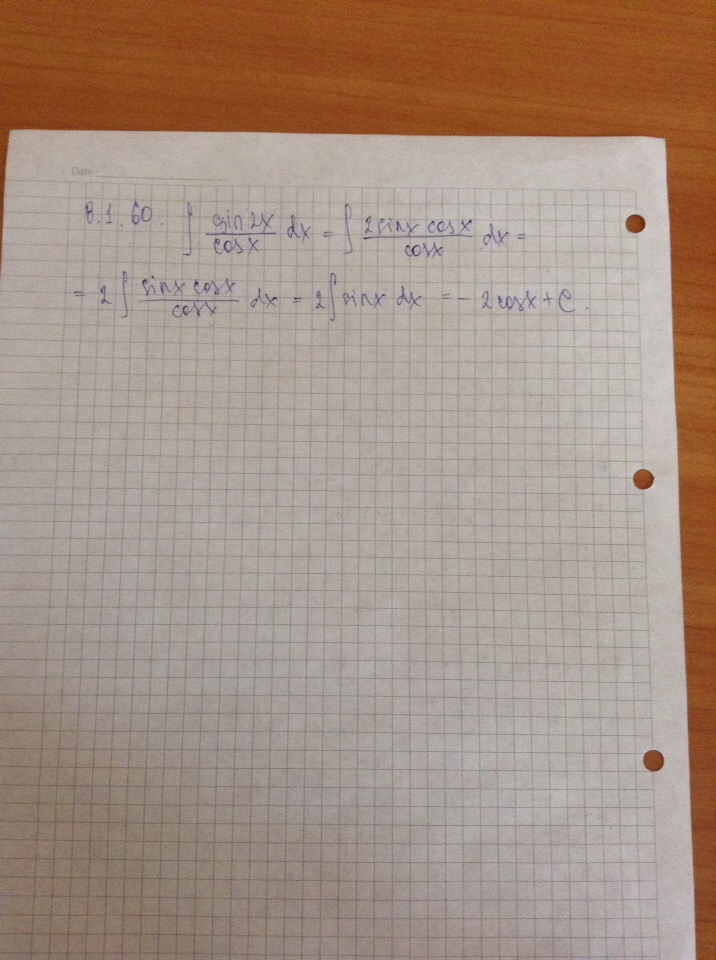 Date
8.1.60. ∫ sin2x/cosx dx = ∫ 2sinx cosx/cosx dx =
= 2 ∫ sinx cosx/cosx dx = 2∫sinx dx = - 2cosx + C.